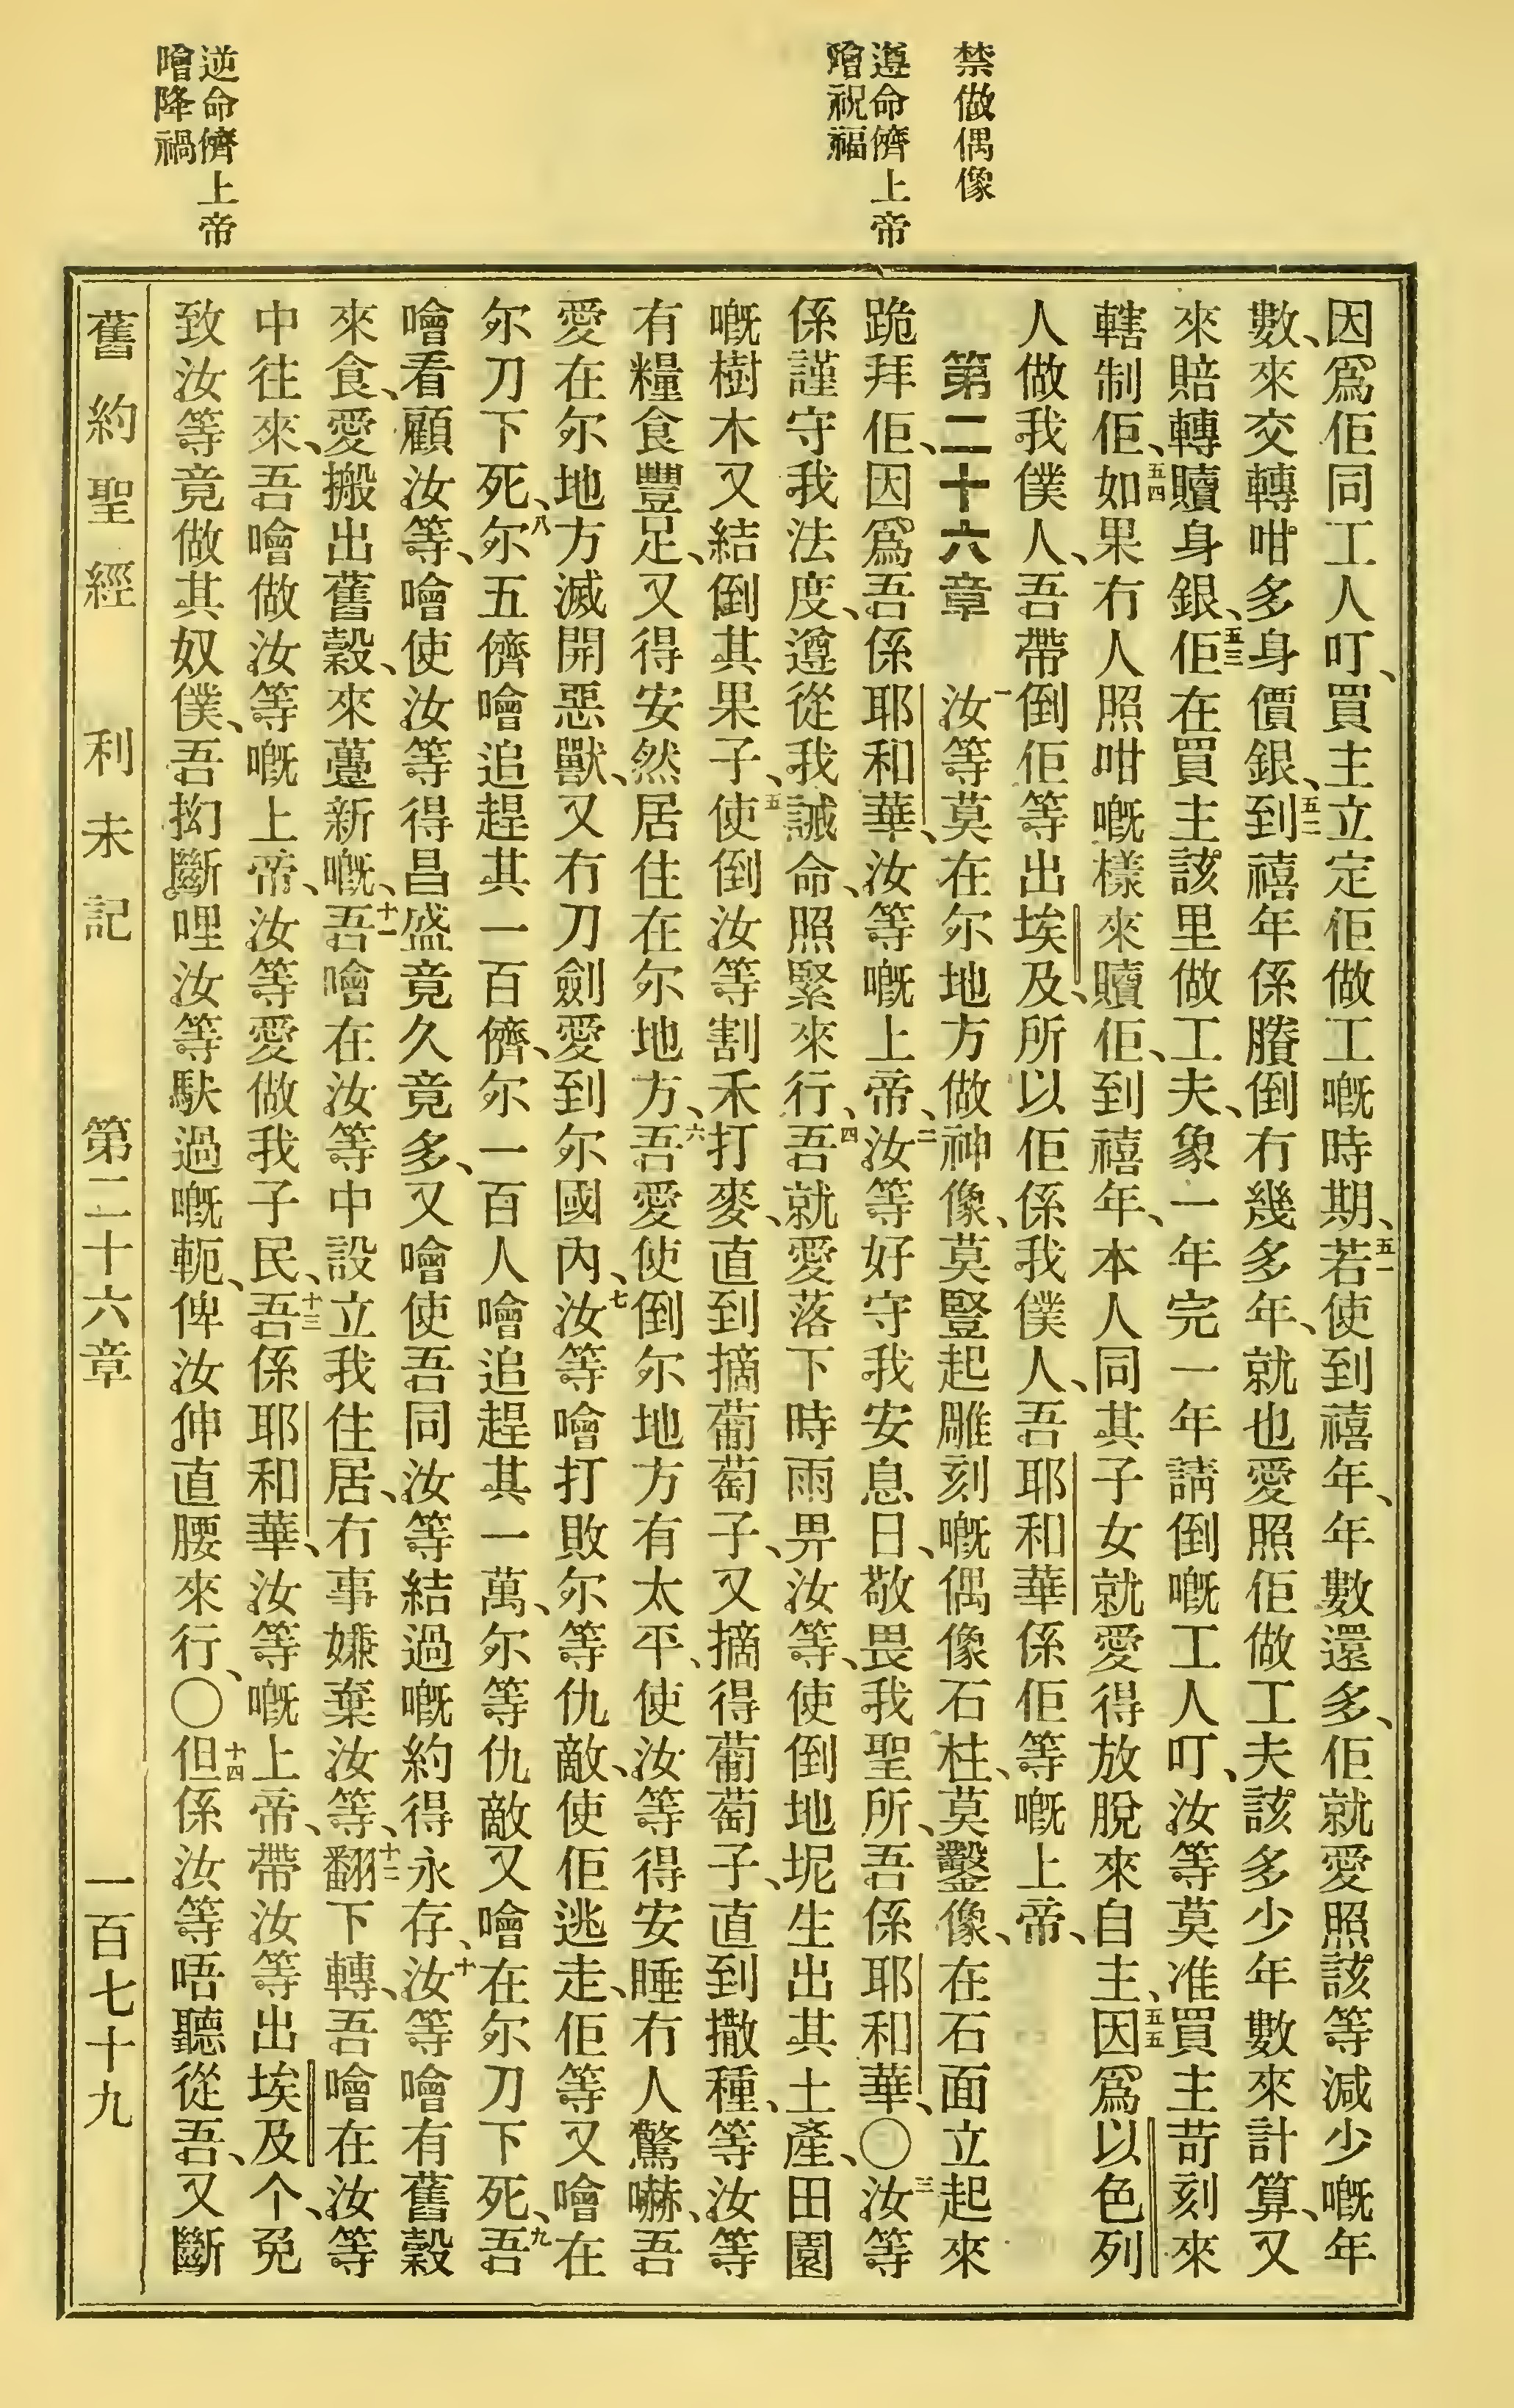 禁做偶像
遵命儕上帝
噲祝福
逆命儕上帝
噲降禍
因爲佢同工人叮、買主立定佢做工嘅時期、五一若使到禧年、年數還多、佢就愛照該等減少嘅年
數、來交轉咁多身價銀、五二到禧年係賸倒冇幾多年、就也愛照佢做工夫該多少年數來計算、又
來賠轉贖身銀、五三佢在買主該里做工夫、象一年完一年請倒嘅工人叮、汝等莫准買主苛刻來
轄制佢、五四如果冇人照咁嘅樣來贖佢、到禧年、本人同其子女就愛得放脫來自主、五五因爲以色列
人做我僕人、吾帶倒佢等出埃及、所以佢係我僕人、吾耶和華係佢等嘅上帝、
第二十六章　一汝等莫在尔地方做神像、莫豎起雕刻嘅偶像石柱、莫鑿像、在石面立起來
跪拜佢、因爲吾係耶和華、汝等嘅上帝、二汝等好守我安息日、敬畏我聖所、吾係耶和華、〇三汝等
係謹守我法度、遵從我誡命、照緊來行、四吾就愛落下時雨畀汝等、使倒地坭生出其土產、田園
嘅樹木又結倒其果子、五使倒汝等割禾打麥、直到摘葡萄子、又摘得葡萄子、直到撒種、等汝等
有糧食豐足、又得安然居住在尔地方、六吾愛使倒尔地方有太平、使汝等得安睡冇人驚嚇、吾
愛在尔地方滅開惡獸、又冇刀劍愛到尔國內、七汝等噲打敗尔等仇敵、使佢逃走、佢等又噲在
尔刀下死、八尔五儕噲追趕其一百儕、尔一百人噲追趕其一萬、尔等仇敵又噲在尔刀下死、九吾
噲看顧汝等、噲使汝等得昌盛竟久竟多、又噲使吾同汝等結過嘅約得永存、十汝等噲有舊穀
來食、愛搬出舊穀、來躉新嘅、十一吾噲在汝等中設立我住居、冇事嫌棄汝等、十二翻下轉、吾噲在汝等
中往來、吾噲做汝等嘅上帝、汝等愛做我子民、十三吾係耶和華、汝等嘅上帝、帶汝等出埃及个、免
致汝等竟做其奴僕、吾拗斷哩汝等馱過嘅軛、俾汝伸直腰來行、〇十四但係汝等唔聽從吾、又斷
舊約聖經　利未記　第二十六章　一百七十九